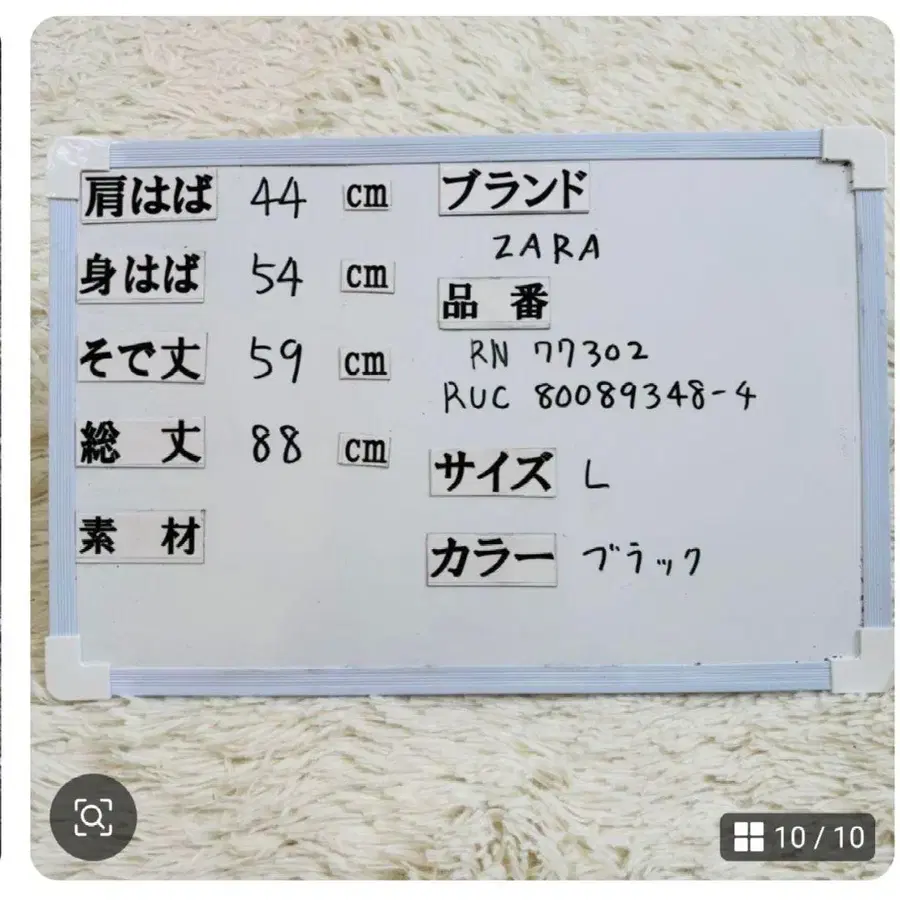 肩はば 44 cm
身はば 54 cm
そで丈 59 cm
総丈 88 cm
素材
ブランド
ZARA
品番
RN 77302
RUC 80089348-4
サイズ L
カラー ブラック
10 / 10